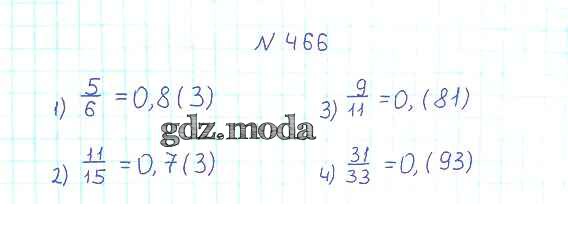 N 466
1) 5/6 = 0,8(3)
3) 9/11 = 0,(81)
gdz.moda
2) 11/15 = 0,7(3)
4) 31/33 = 0,(93)